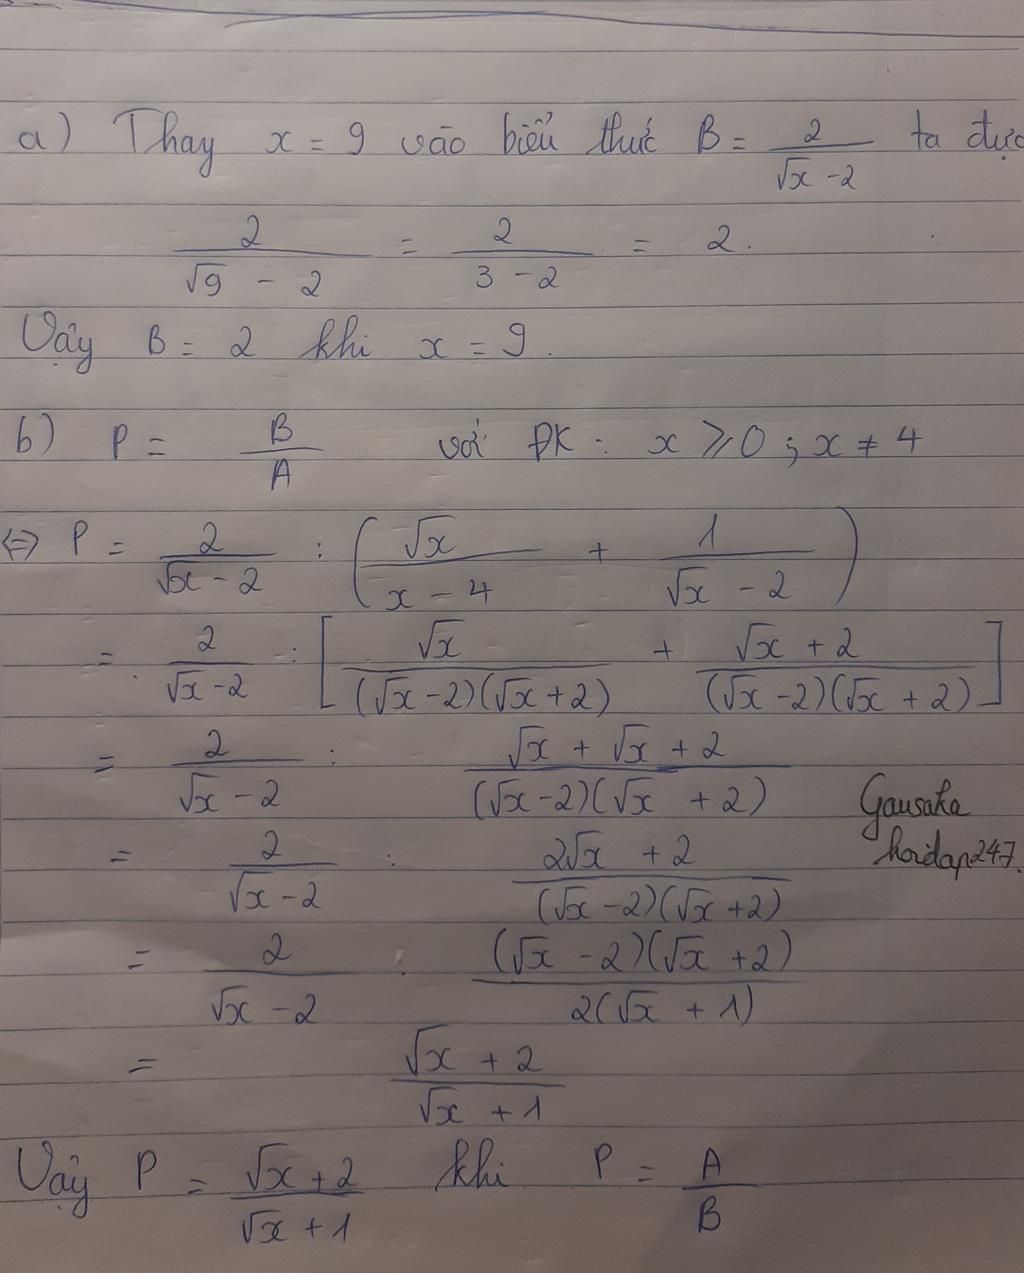 a) Thay x = 9 vào biểu thức B = 2/(√x - 2) ta đực
2/(√9 - 2) = 2/(3 - 2) = 2.
Vậy B = 2 khi x = 9.
b) P = B/A với ĐK : x ⩾ 0 ; x ≠ 4
<=> P = 2/(√x - 2) : (√x/(x - 4) + 1/(√x - 2))
= 2/(√x - 2) : [√x/((√x - 2)(√x + 2)) + (√x + 2)/((√x - 2)(√x + 2))]
= 2/(√x - 2) : (√x + √x + 2)/((√x - 2)(√x + 2))
Gausaka
= 2/(√x - 2) : (2√x + 2)/((√x - 2)(√x + 2))
hoidap247.
= 2/(√x - 2) . ((√x - 2)(√x + 2))/(2(√x + 1))
= (√x + 2)/(√x + 1)
Vậy P = (√x + 2)/(√x + 1) khi P = A/B